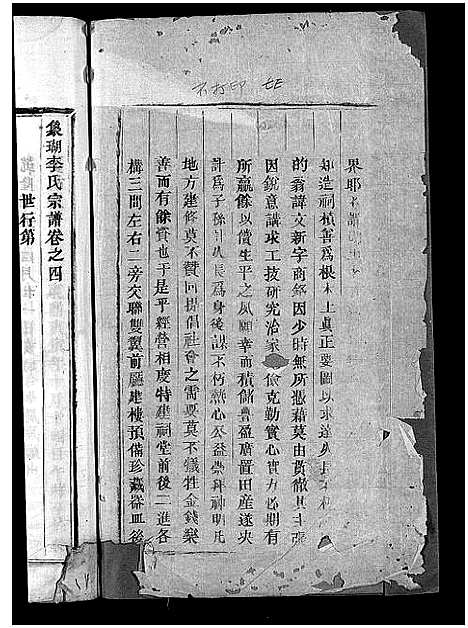 不打印
界耶
知造祠植善爲根本上眞正要圖以求達
的翁諱文新字商銘因少時無所憑藉莫由貫徹其主張
因銳意講求工技研究治家儉克勤實心實力必期有
所贏餘以償生平之夙願幸而積儲豊盈廣置田産遂夾
計爲子孫計久長爲身後謀不朽熱心公益崇拜神明凡
地方建修莫不贊囘提倡社會之需要莫不犧牲金錢樂
善而有餘貲也于是平經營相度特建祠堂前後二進各
構三間左右二旁交聯雙翼前廳建樓預備珍藏器皿後
象瑚李氏宗譜卷之四
世行第